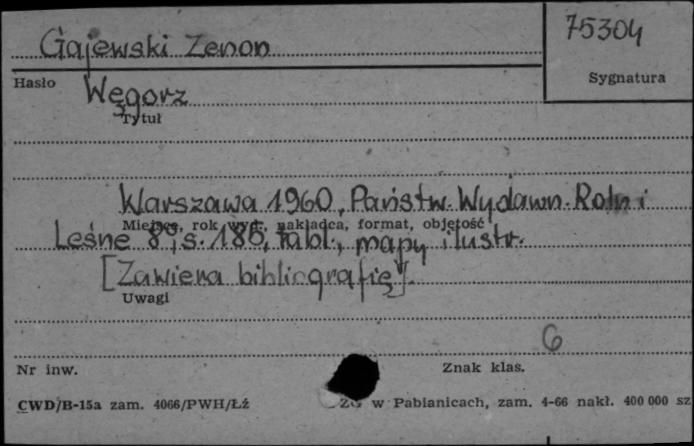 Gajewski Zenon
75304
Hasło
Sygnatura
Węgorz
Tytuł
Warszawa 1960, Państw. Wydawn. Roln i
Miejsce, rok wyd., nakładca, format, objętość
Leśne 8°, s. 186, tabl., mapy ilustr.
[Zawiera bibliografię].
Uwagi
6
Nr inw.
Znak klas.
CWD/B-15a zam. 4066/PWH/Łź
ZG w Pabianicach, zam. 4-66 nakł. 400 000 sz